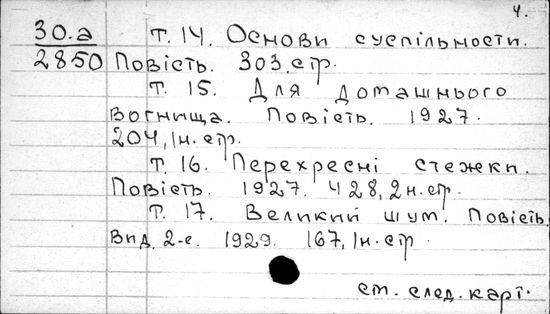 4.
30.а т. 14. Основи суспільности.
2850 Повість. 303 стр.
т. 15. Для домашнього
вогнища. Повість. 1927.
204, 1 н. стр.
т. 16. Перехресні стежки.
Повість. 1927. 428, 2 н. стр.
т. 17. Великий шум. Повість.
Вид. 2-е. 1929. 167, 1 н. стр.
см. след. карт.